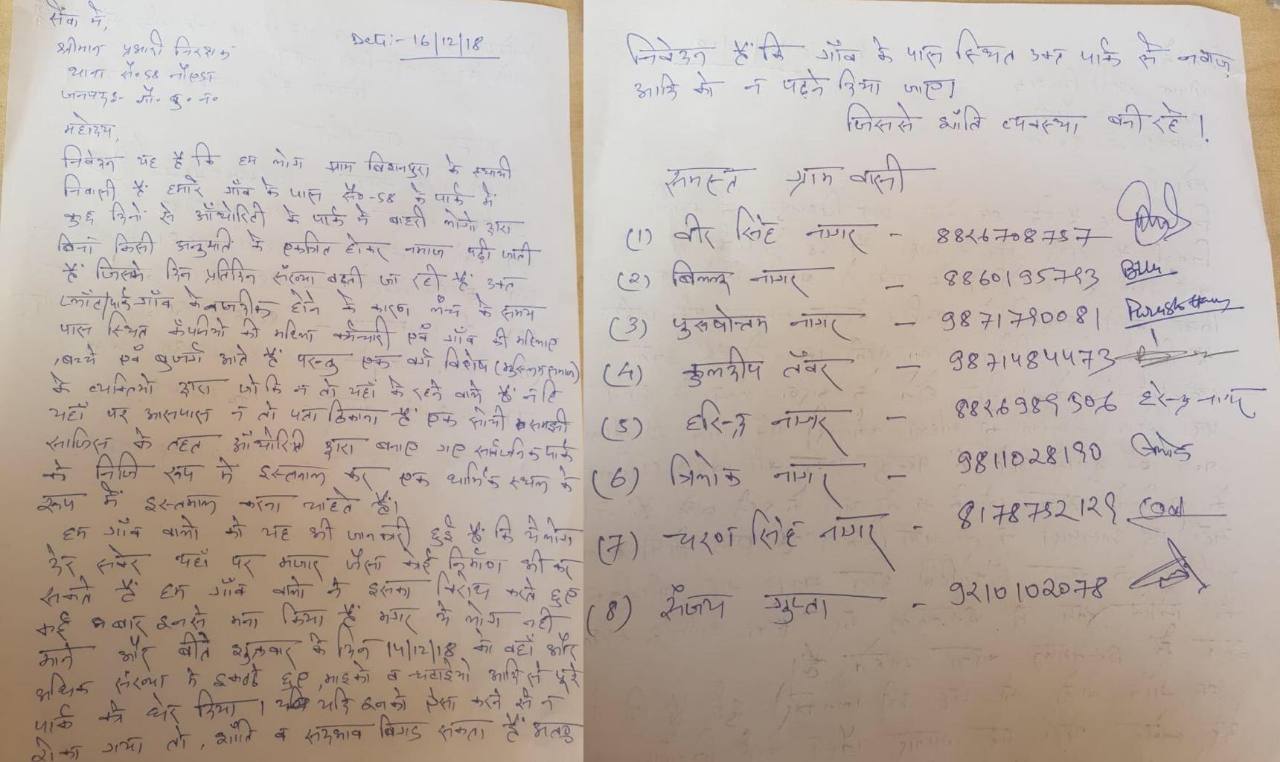 सेवा में,
Date:- 16/12/18
श्रीमान प्रभारी निरक्षक
थाना सै०-58 नौएडा
जनपद:- गौ० बु० न०
महोदय,
निवेदन यह है कि हम लोग ग्राम बिशनपुरा के स्थायी
निवासी हैं हमारे गाँव के पास सै०-58 के पार्क में
कुछ दिनों से ऑथोरिटी के पार्क में बाहरी लोगो द्वारा
बिना किसी अनुमति के एकत्रित होकर नमाज पढी जाती
हैं जिसके दिन प्रतिदिन संख्या बढती जा रही है, उक्त
प्लॉट/पार्क गाँव के नजदीक होने के कारण लंच के समय
पास स्थित कंपनियो की महिला कर्मचारी एवं गाँव की महिलाए
,बच्चे एवं बुजर्ग आते हैं परन्तु एक वर्ग विशेष
के व्यक्तियो द्वारा जो कि न तो यहाँ के रहने वाले हैं न हि
यहाँ पर आसपास न तो पता ठिकाना हैं एक सोची समझी
साजिस के तहत ऑथोरिटी द्वारा बनाए गए सार्वजनिक पार्क
को निजि रूप में इस्तमाल कर एक धार्मिक स्थल के
रूप में इस्तमाल करना चाहते हैं।
हम गाँव वालो को यह भी जानकारी हुई हैं कि ये लोग
देर सवेर यहाँ पर मजार जैसा कोई निर्माण भी कर
सकते हैं हम गाँव वालो ने इसका विरोध करते हुए
कई बार इनसे मना किया हैं मगर ये लोग नही
माने और बीते शुक्रवार के दिन 14/12/18 को वहाँ और
अधिक संख्या में इकठ्ठे हुए, माइको व चटाईयो आदि से पूरे
पार्क को घेर लिया। यदि इनको ऐसा करने से न
रोका गया तो, शाँति व सदभाव बिगड सकता हैं अतः
निवेदन हैं कि गाँव के पास स्थित उक्त पार्क में नमाज
आदि को न पढ़ने दिया जाए।
जिससे शाँति व्यवस्था बनी रहे।
समस्त ग्राम वासी
(1) वीर सिंह नागर - 8826708757
(2) बिल्लू नागर - 8860195793 Billu
(3) पुरुषोत्तम नागर - 9871790081 Purushottam
(4) कुलदीप तँवर - 9871484473
(5) हरिन्द्र नागर - हरेन्द्र नागर
(6) त्रिलोक नागर - 9811028190 त्रिलोक
(7) चरण सिंह नागर - 8178752129
(8) संजय गुप्ता - 9210102078